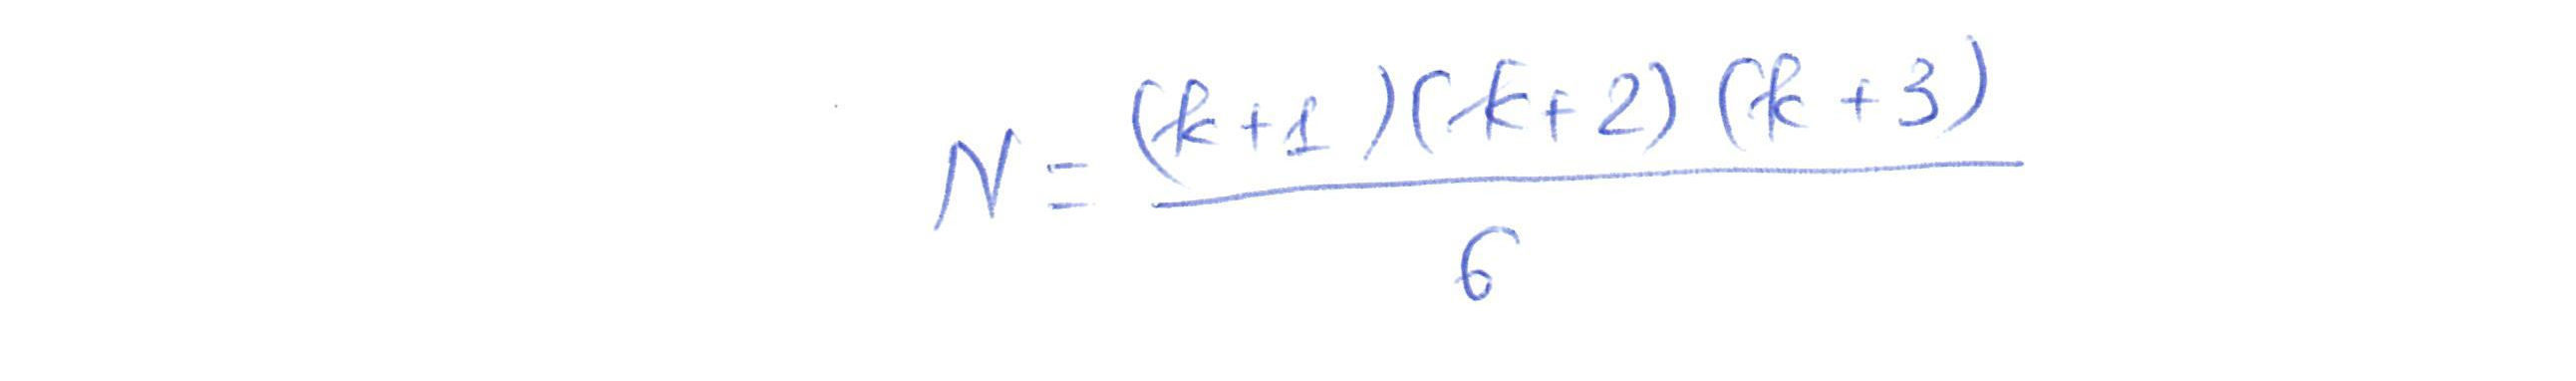 N = (k+1)(k+2)(k+3) / 6